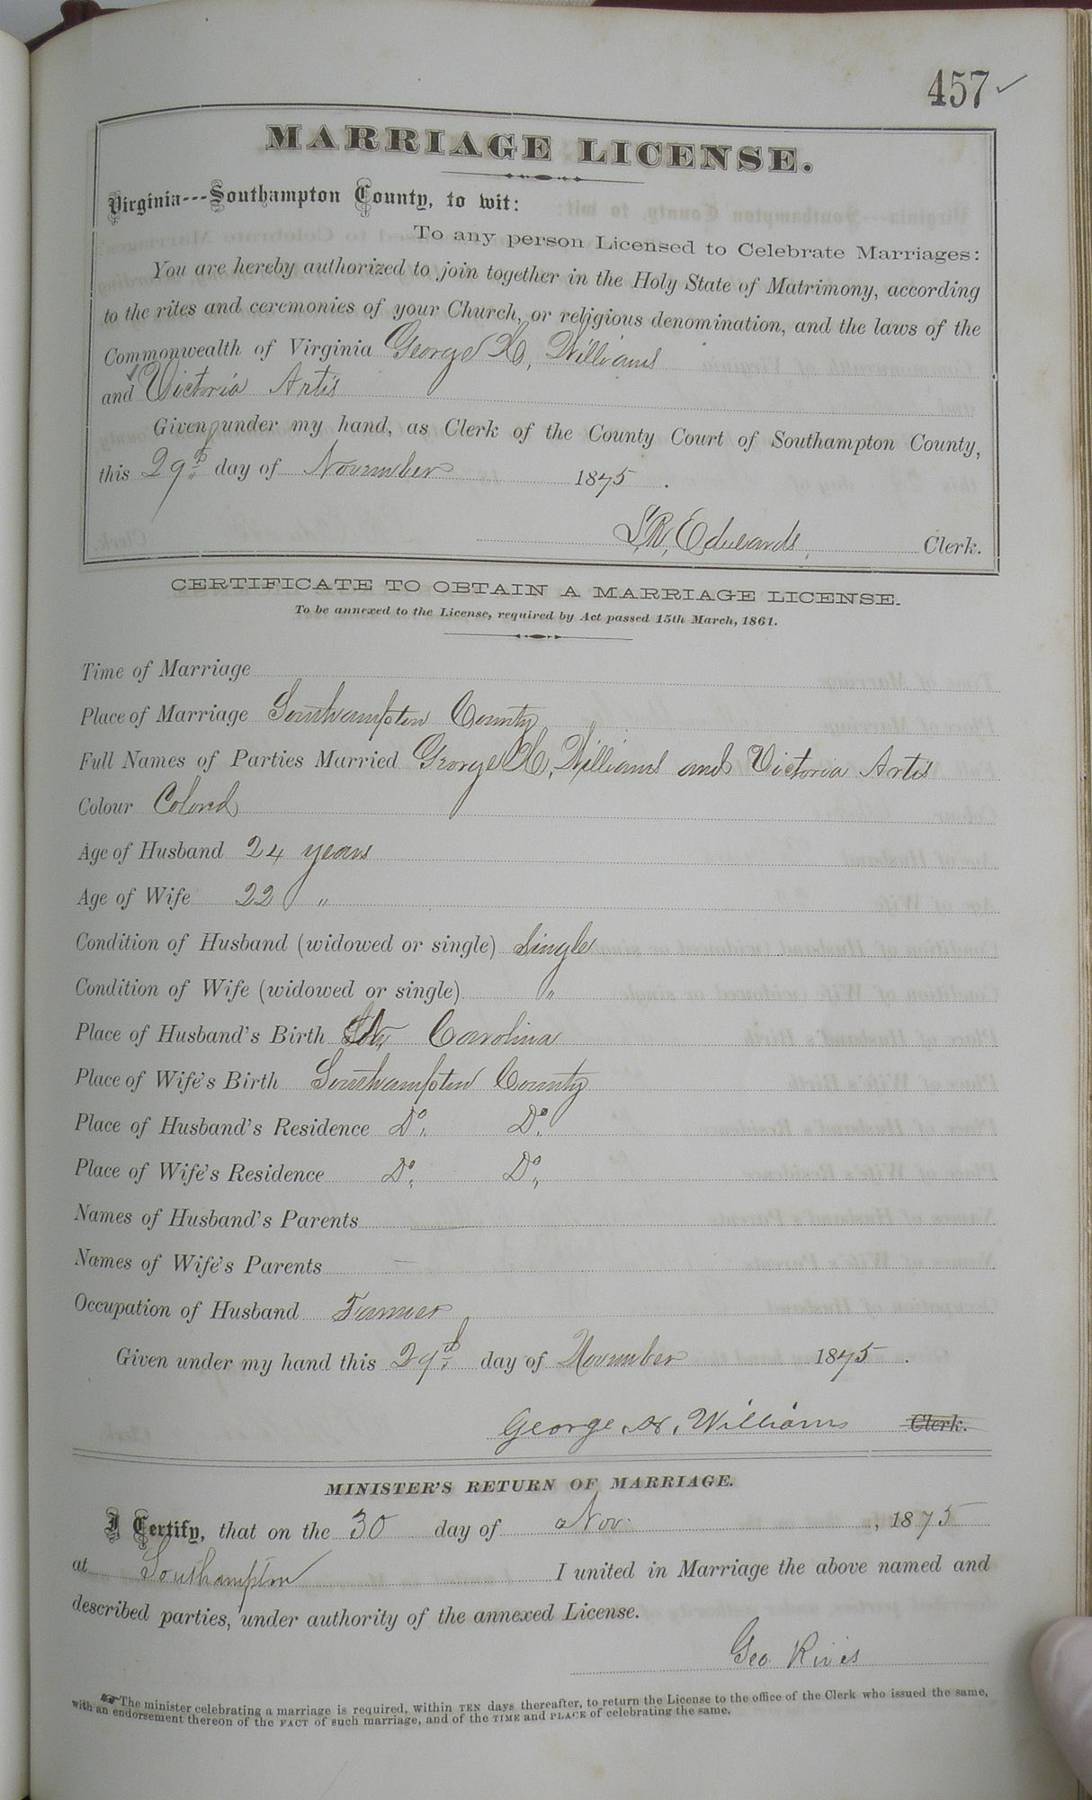 457 ✓
MARRIAGE LICENSE.
Virginia---Southampton County, to wit:
To any person Licensed to Celebrate Marriages:
You are hereby authorized to join together in the Holy State of Matrimony, according
to the rites and ceremonies of your Church, or religious denomination, and the laws of the
Commonwealth of Virginia George H. Williams
and Victoria Artis
Given under my hand, as Clerk of the County Court of Southampton County,
this 29th day of November 1875.
L. R. Edwards, Clerk.
CERTIFICATE TO OBTAIN A MARRIAGE LICENSE.
To be annexed to the License, required by Act passed 15th March, 1861.
Time of Marriage
Place of Marriage Southampton County
Full Names of Parties Married George H. Williams and Victoria Artis
Colour Colored
Age of Husband 24 years
Age of Wife 22 "
Condition of Husband (widowed or single) Single
Condition of Wife (widowed or single) "
Place of Husband's Birth Carolina
Place of Wife's Birth Southampton County
Place of Husband's Residence Do. Do.
Place of Wife's Residence Do. Do.
Names of Husband's Parents
Names of Wife's Parents —
Occupation of Husband Farmer
Given under my hand this 29th day of November 1875.
George H. Williams Clerk.
MINISTER'S RETURN OF MARRIAGE.
I Certify, that on the 30 day of Nov. , 1875
at Southampton I united in Marriage the above named and
described parties, under authority of the annexed License.
Geo Rivis
The minister celebrating a marriage is required, within TEN days thereafter, to return the License to the office of the Clerk who issued the same,
with an endorsement thereon of the FACT of such marriage, and of the TIME and PLACE of celebrating the same.